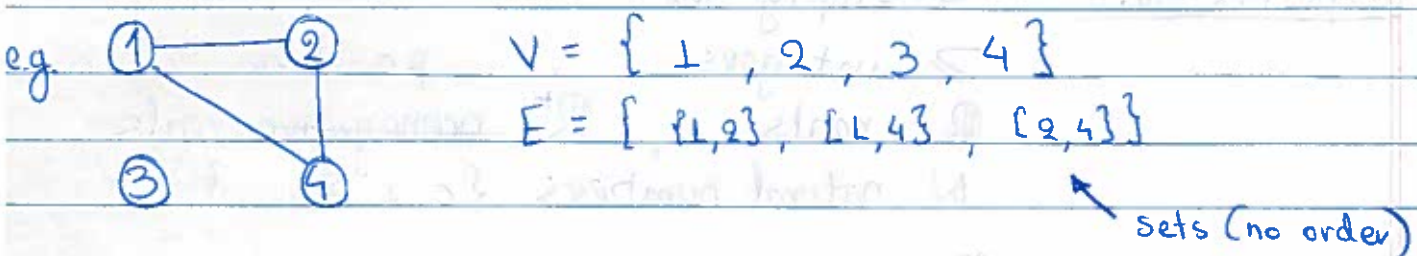 e.g. 1 2 V = { 1, 2, 3, 4 }
E = { {1,2}, {1,4}, {2,4}}
3 4
sets (no order)